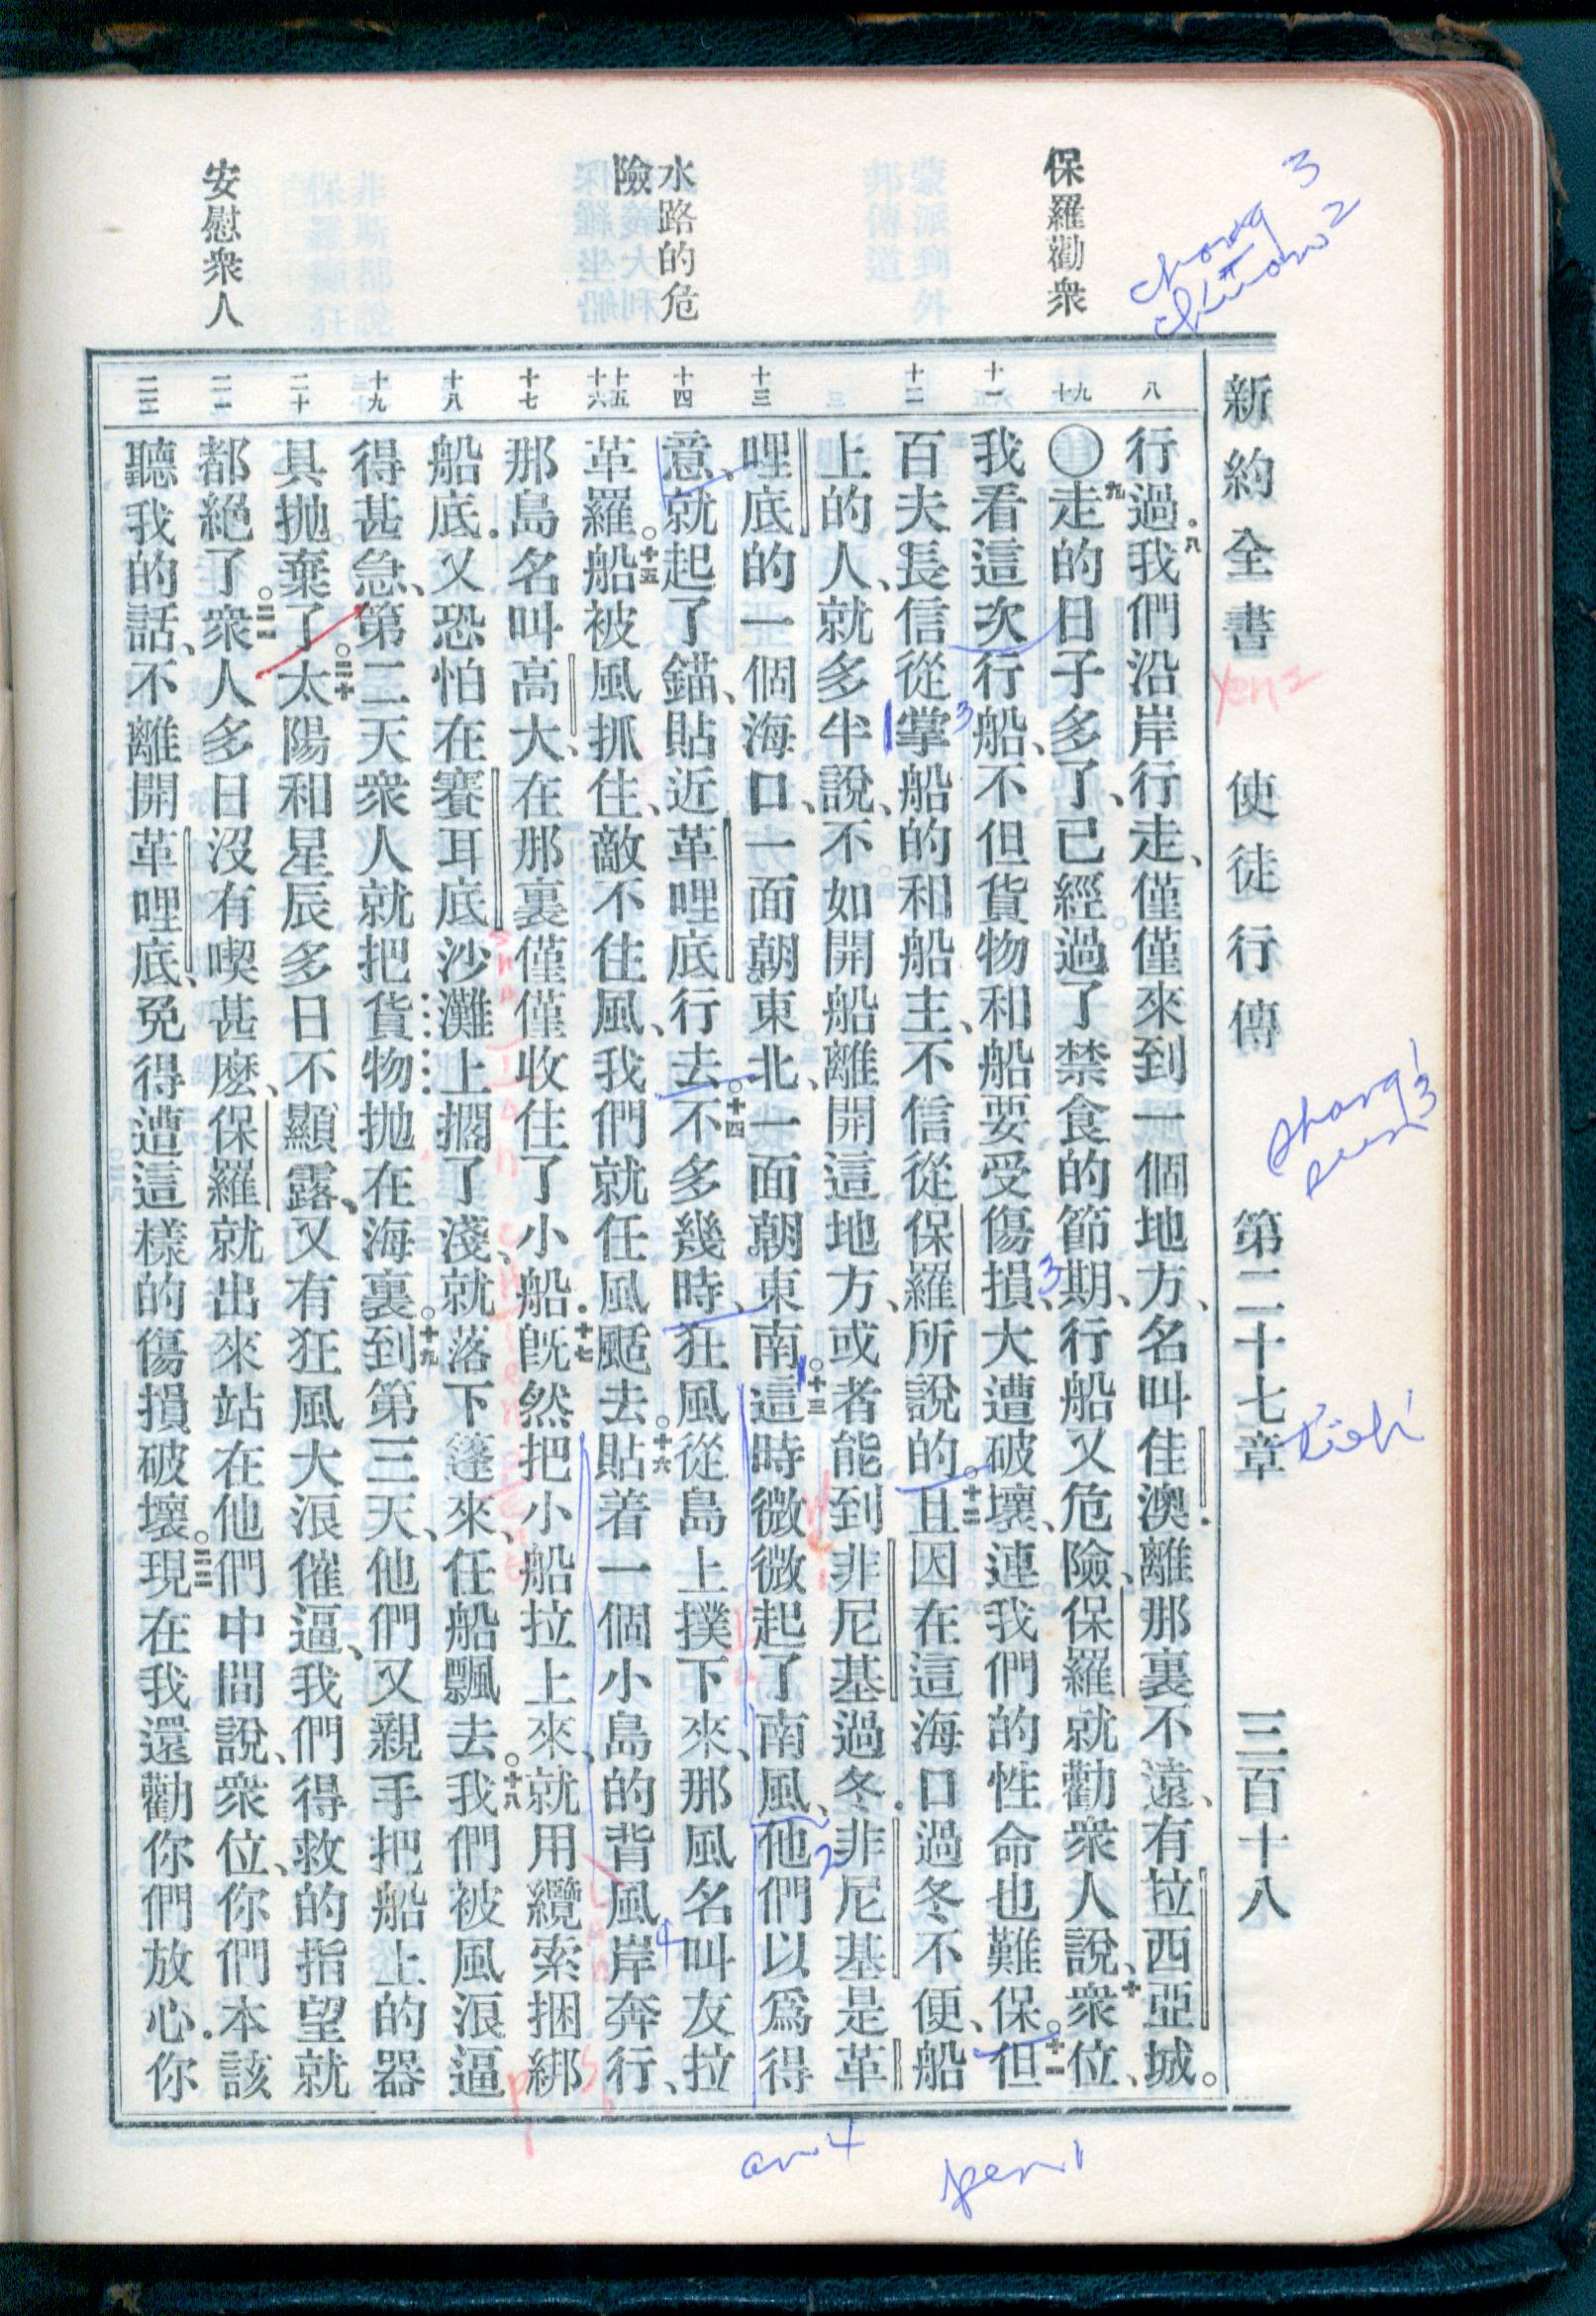 新約全書　使徒行傳　第二十七章　三百十八
保羅勸衆
水路的危
險
安慰衆人
八
九
十
十一
十二
十三
十四
十五
十六
十七
十八
十九
二十
二一
二二
行過．八我們沿岸行走、僅僅來到一個地方、名叫佳澳．離那裏不遠、有拉西亞城。
〇九走的日子多了、已經過了禁食的節期、行船又危險、保羅就勸衆人說、十衆位、
我看這次行船、不但貨物和船要受傷損、大遭破壞、連我們的性命也難保。十一但
百夫長信從掌船的和船主、不信從保羅所說的。十二且因在這海口過冬不便、船
上的人、就多半說、不如開船離開這地方、或者能到非尼基過冬．非尼基是革
哩底的一個海口、一面朝東北、一面朝東南。十三這時微微起了南風、他們以爲得
意、就起了錨、貼近革哩底行去。十四不多幾時、狂風從島上撲下來、那風名叫友拉
革羅。十五船被風抓住、敵不住風、我們就任風颳去。十六貼着一個小島的背風岸奔行、
那島名叫高大、在那裏僅僅收住了小船．十七旣然把小船拉上來、就用纜索捆綁
船底．又恐怕在賽耳底沙灘上擱了淺、就落下篷來、任船飄去。十八我們被風浪逼
得甚急、第二天衆人就把貨物抛在海裏。十九到第三天、他們又親手把船上的器
具抛棄了。二十太陽和星辰多日不顯露、又有狂風大浪催逼、我們得救的指望就
都絕了。二一衆人多日沒有喫甚麽、保羅就出來站在他們中間說、衆位、你們本該
聽我的話、不離開革哩底、免得遭這樣的傷損破壞。二二現在我還勸你們放心．你
chang 3
chuan 2
3
3
2
4
yen 2
shang 1
sun 3
an 4